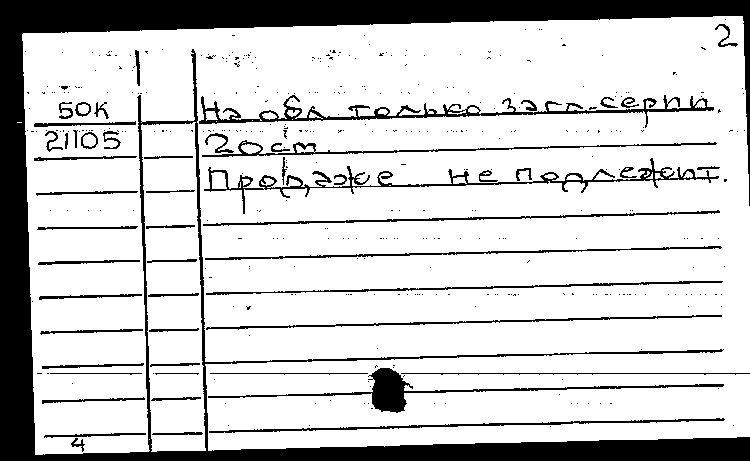 2
50К На обл только загл. серии.
21105 20 см.
Продаже не подлежит.
4